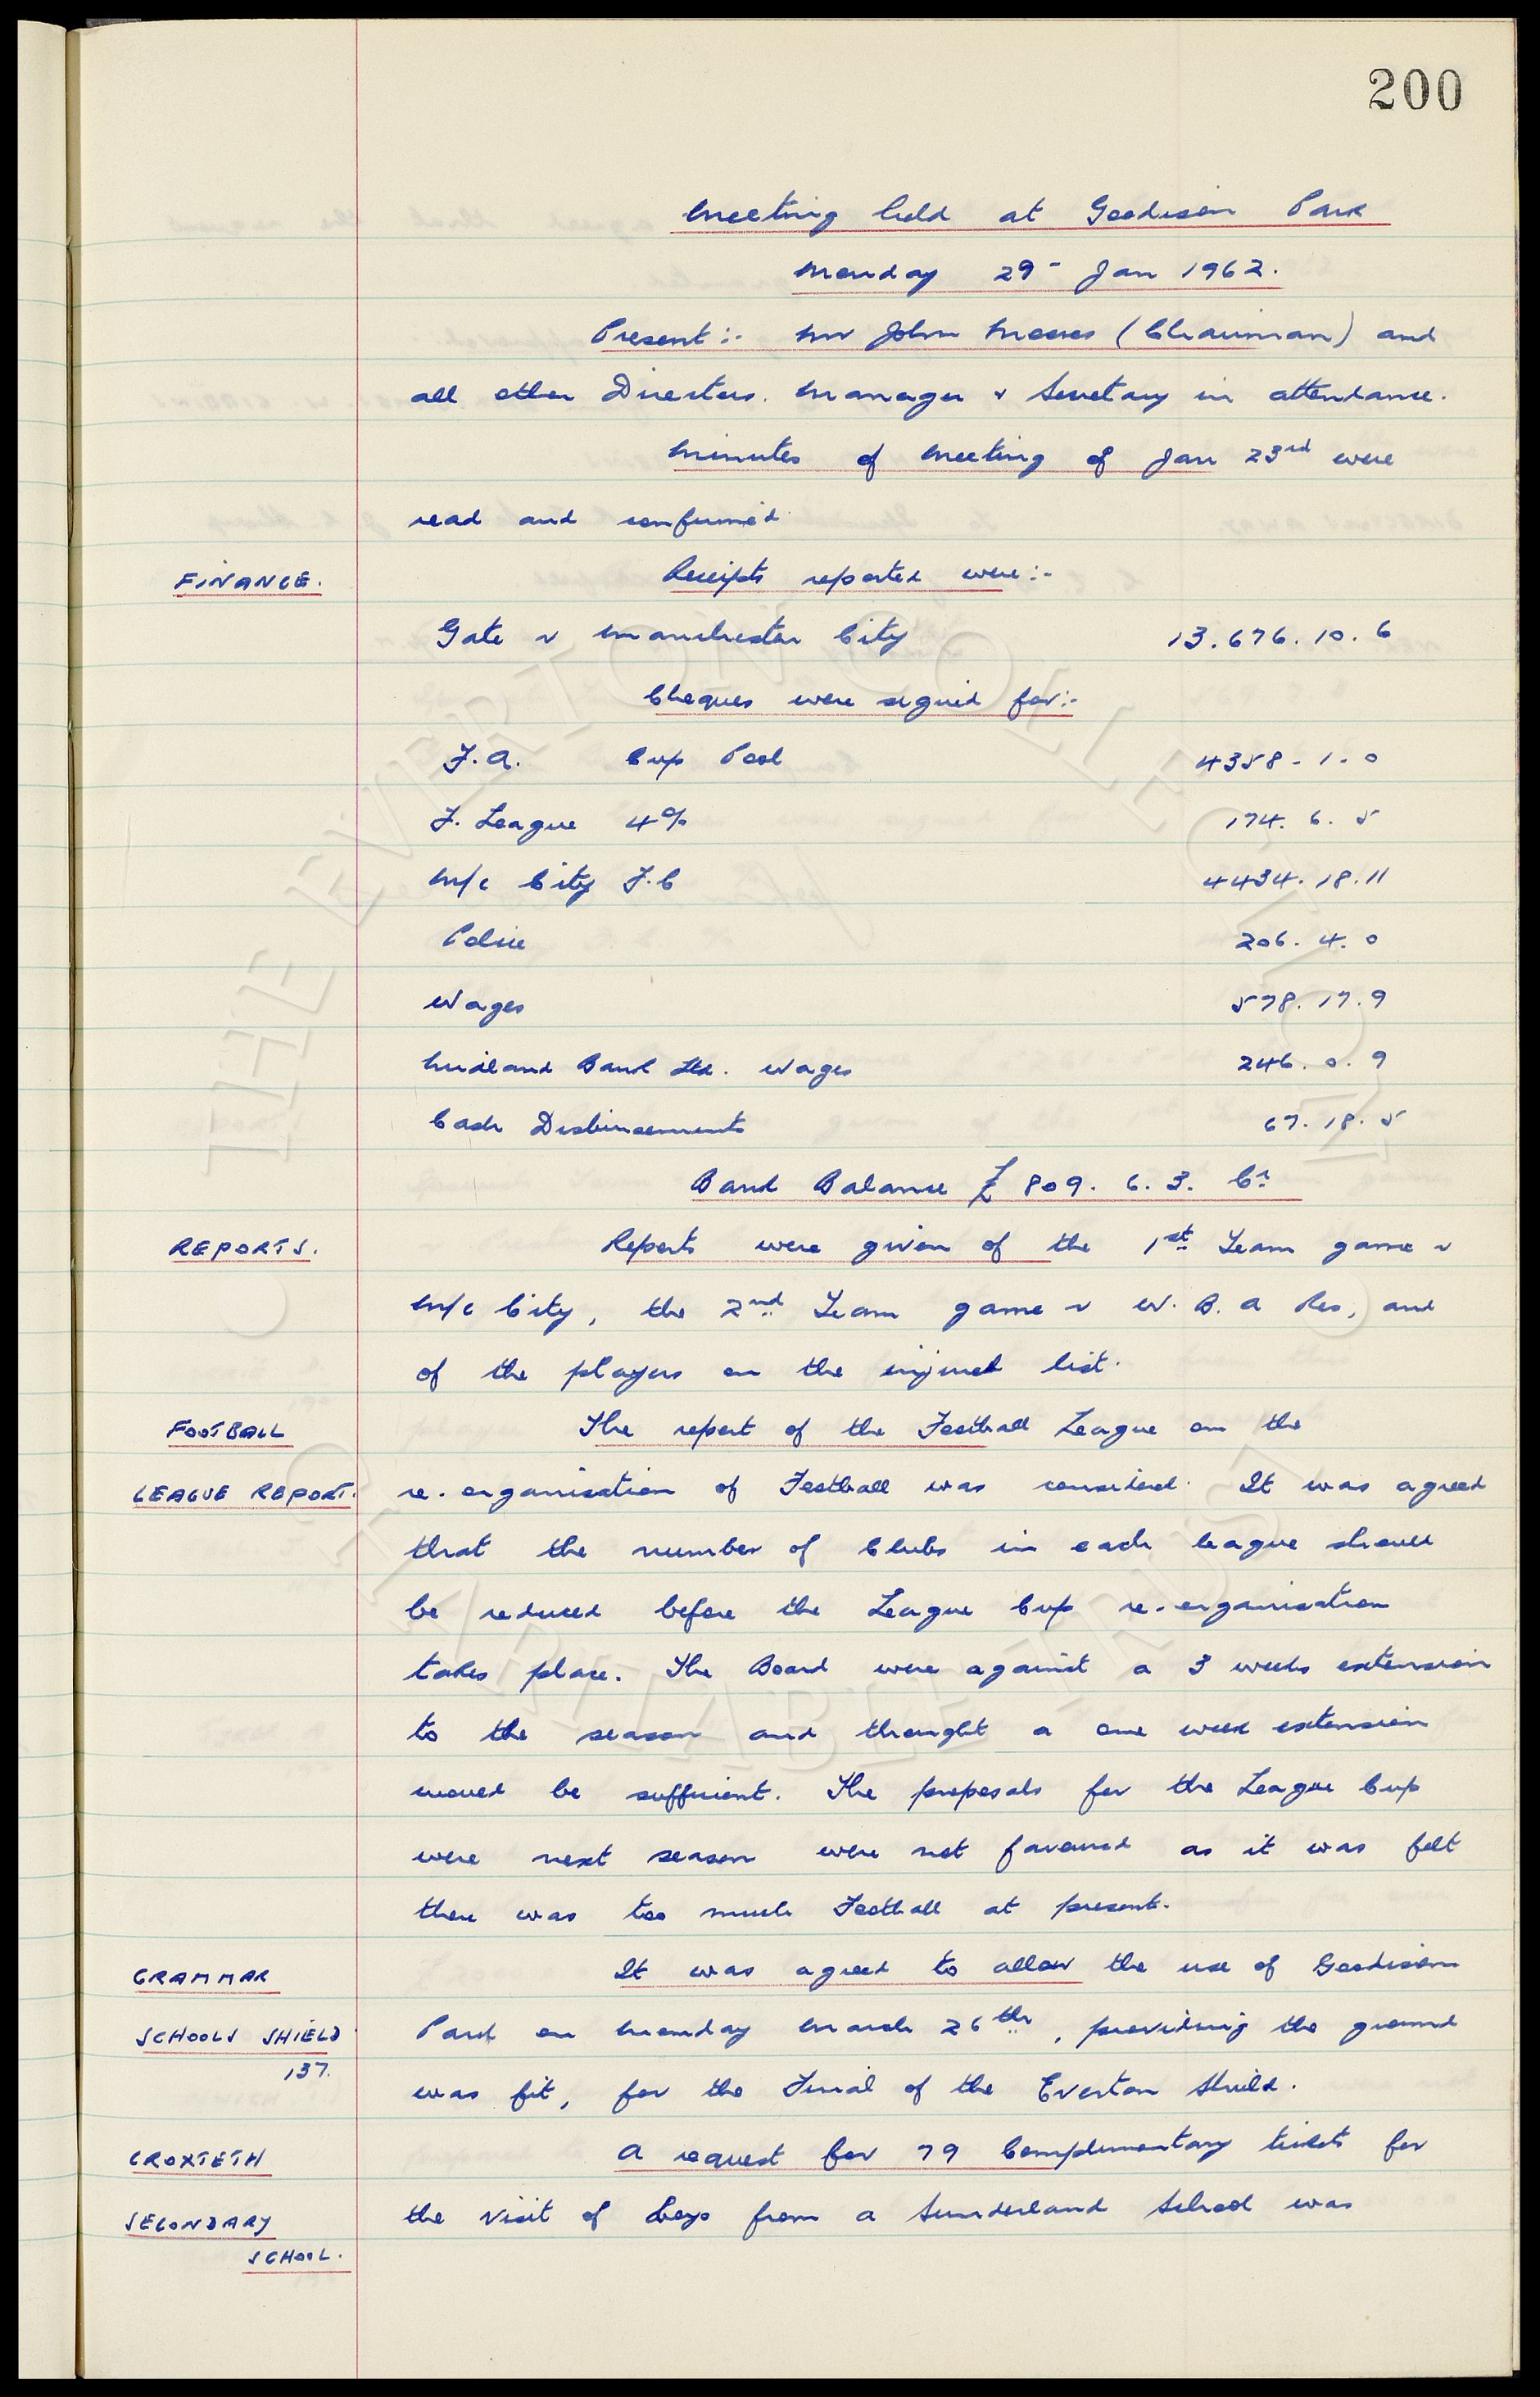 200
Meeting held at Goodison Park
Monday 29- Jan 1962.
Present:- Mr John Moores (Chairman) and
all other Directors. Manager & Secretary in attendance.
Minutes of Meeting of Jan 23rd were
read and confirmed
FINANCE. Receipts reported were:-
Gate v Manchester City 13.676.10.6
Cheques were signed for:-
F.A. Cup Pool 4358-1-0
F. League 4% 174.6.5
M/c City F.C 4434.18.11
Police 206.4.0
Wages 578.17.9
Midland Bank Ltd. Wages 246.0.9
Cash Disbursements 67.18.5
Bank Balance £809.6.3. Cr
REPORTS. Reports were given of the 1st Team game v
M/c City, the 2nd Team game v W.B.A Res, and
of the players on the injured list.
FOOTBALL The report of the Football League on the
LEAGUE REPORT. re-organisation of Football was considered. It was agreed
that the number of Clubs in each league should
be reduced before the League Cup re-organisation
takes place. The Board were against a 3 weeks extension
to the season and thought a one week extension
would be sufficient. The proposals for the League Cup
were next season were not favoured as it was felt
there was too much Football at present.
GRAMMAR It was agreed to allow the use of Goodison
SCHOOLS SHIELD Park on Monday March 26th, providing the ground
137.
was fit, for the Final of the Everton Shield.
CROXTETH A request for 79 Complimentary tickets for
SECONDARY the visit of boys from a Sunderland School was
SCHOOL.
THE EVERTON COLLECTION
© CHARITABLE TRUST ©